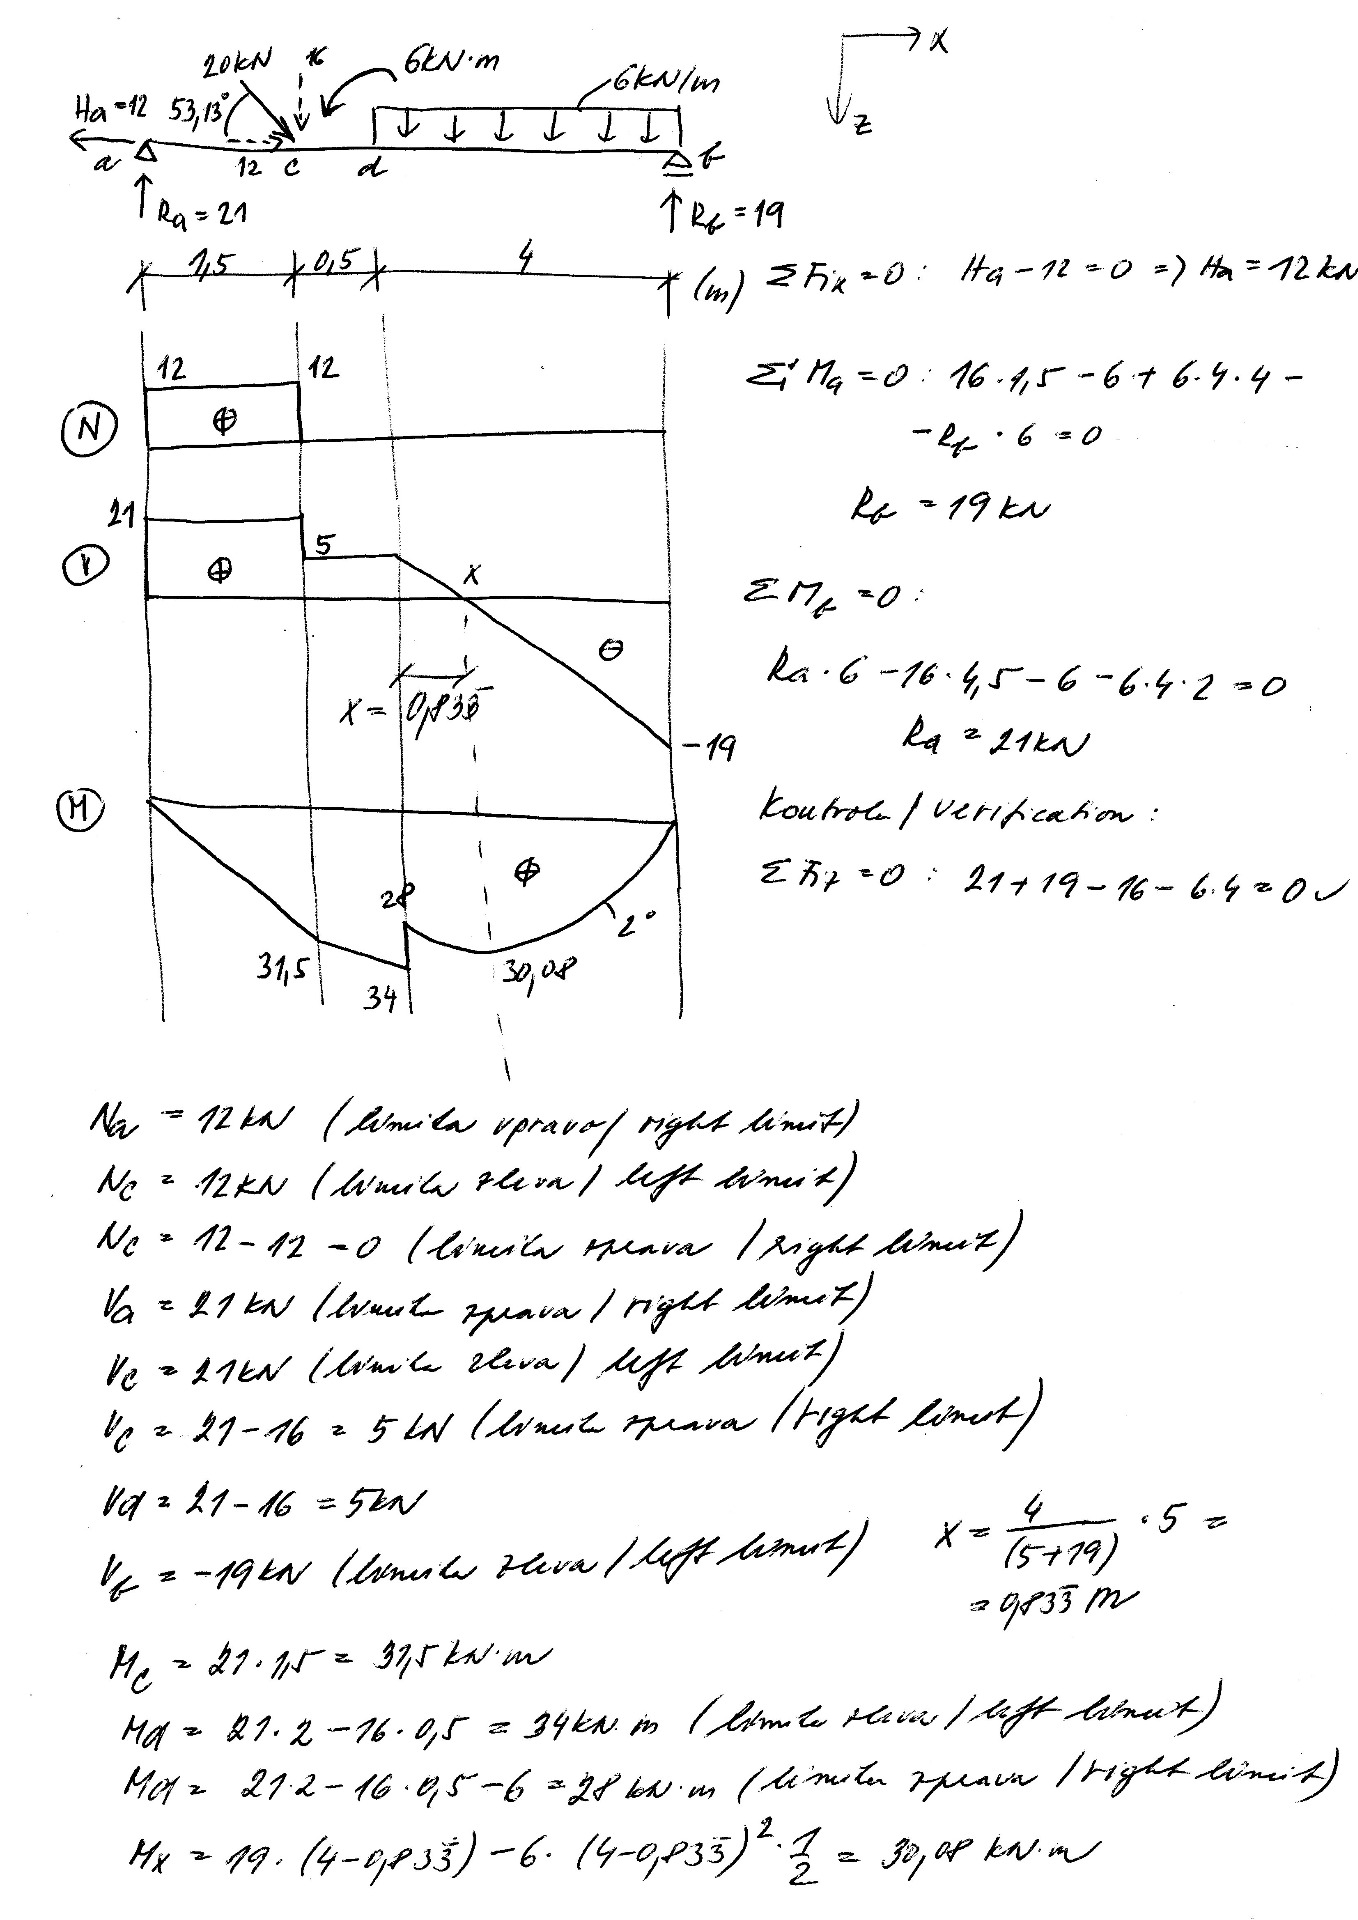 20kN 16 6kN·m 6kN/m x
Ha=12 53,13° z
a 12 c d b
Ra=21 Rb=19
1,5 0,5 4 (m)
ΣFix=0: Ha-12=0 => Ha=12kN
12 12
N
ΣiMa=0: 16·1,5-6+6·4·4-
-Rb·6=0
Rb=19kN
21
V 5 x
x=0,83\overline{3}
-19
ΣMb=0:
Ra·6-16·4,5-6-6·4·2=0
Ra=21kN
Kontrola/Verification:
ΣFiz=0: 21+19-16-6·4=0✓
M
28
2°
31,5 34 30,08
Na = 12kN (limita vpravo/ right limit)
Nc = 12kN (limita zleva/ left limit)
Nc = 12-12=0 (limita zprava/right limit)
Va = 21kN (limita zprava/right limit)
Vc = 21kN (limita zleva/ left limit)
Vc = 21-16 = 5kN (limita zprava/right limit)
Vd = 21-16 = 5kN
Vb = -19kN (limita zleva/left limit)
x = 4/(5+19) ·5 =
= 0,83\overline{3} m
Mc = 21·1,5 = 31,5kN·m
Md = 21·2-16·0,5 = 34kN·m (limita zleva/left limit)
Md = 21·2-16·0,5-6 = 28kN·m (limita zprava/right limit)
Mx = 19·(4-0,83\overline{3})-6·(4-0,83\overline{3})²·1/2 = 30,08 kN·m